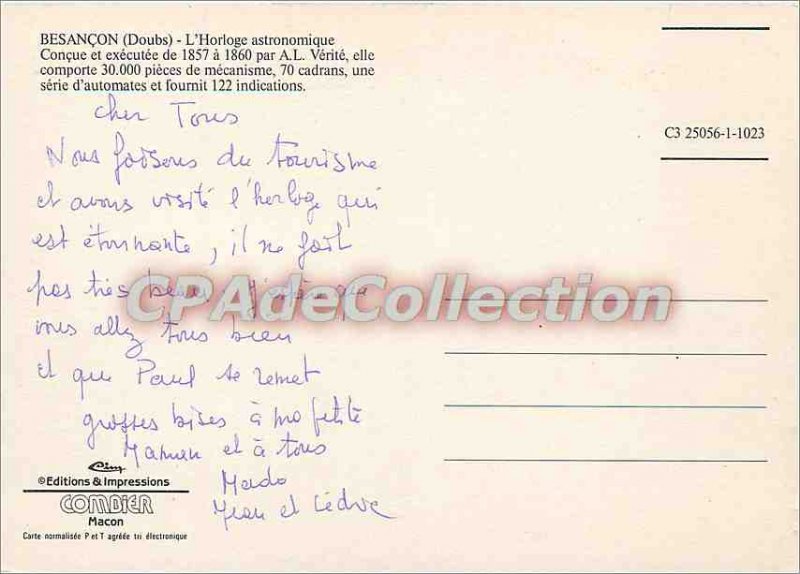 BESANÇON (Doubs) - L'Horloge astronomique
Conçue et exécutée de 1857 à 1860 par A.L. Vérité, elle
comporte 30.000 pièces de mécanisme, 70 cadrans, une
série d'automates et fournit 122 indications.
C3 25056-1-1023
Cher Tous
Nous faisons du tourisme
et avons visité l'horloge qui
est étonnante, il ne fait
pas très beau J'espère que
CPAdeCollection
vous allez tous bien
et que Paul se remet
grosses bises à ma petite
Maman et à tous
Mado
Jean et Cédric
Cim
©Editions & Impressions
COMBIER
Macon
Carte normalisée P et T agréée tri électronique